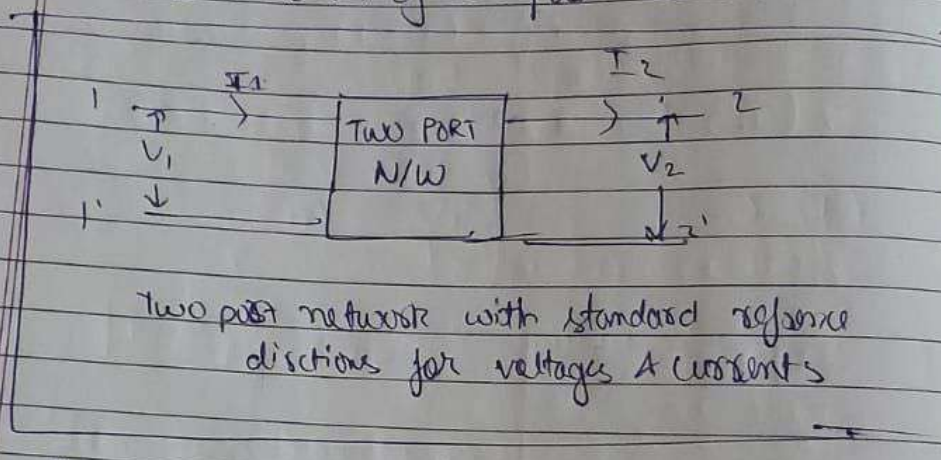 I1
I2
1
2
TWO PORT
V1
V2
N/W
1'
2'
Two port network with standard refernce
dirctions for voltages & currents